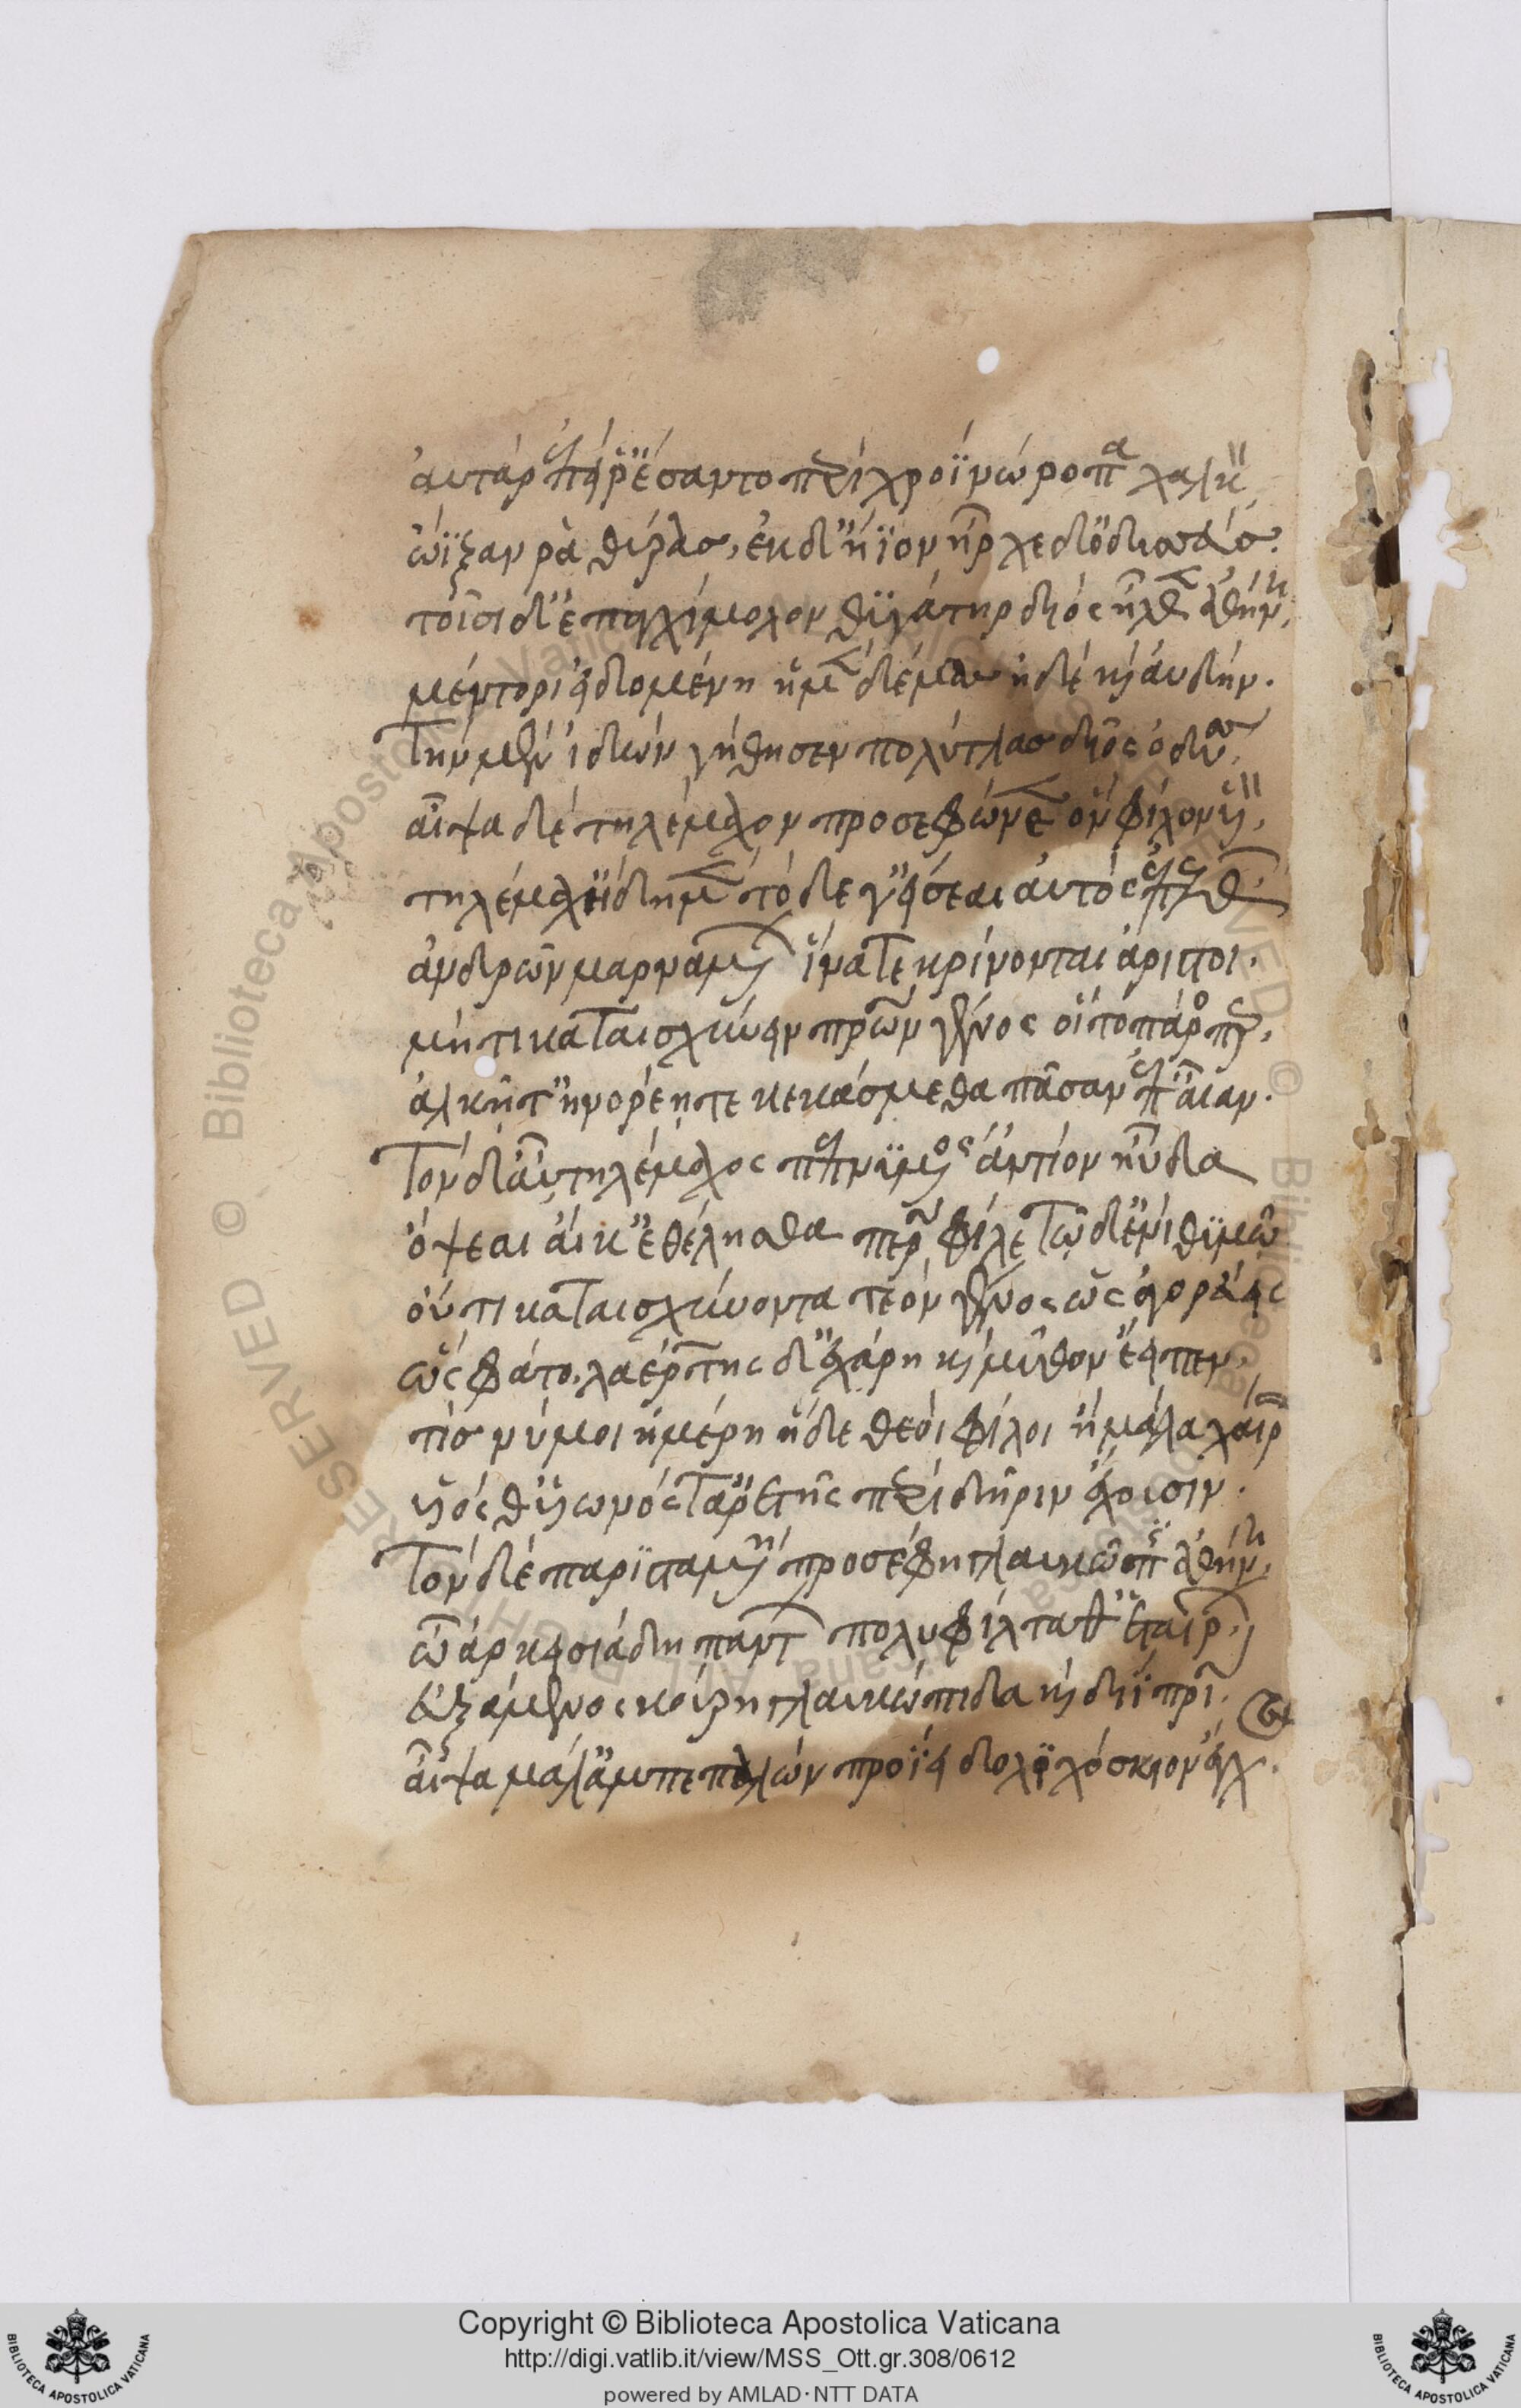 αυτάρ ἐπεί ῥ' ἕσαντο περὶ χροῒ νώροπα χαλκὸν
ώϊξαν ρὰ θύρας, ἐκ δ' ἤϊον ἦρχε δ' ὀδυσσεύς.
τοῖσι δ' ἐπ' αγχίμολον θυγάτηρ διὸς ἦλθεν ἀθήνη,
μέντορι ειδομένη ημὲν δέμας ἠδὲ καὶ ἀυδήν.
Τὴν μὲν ἰδὼν γήθησεν πολύτλας δῖος ὀδυσσεύς,
αἶψα δὲ τηλέμαχον προσεφώνεεν ὃν φίλον υἱόν,
τηλέμαχ' ἤδη μὲν τόδε γ' εἴσεαι αὐτὸς ἐπελθών
ἀνδρῶν μαρναμένων ἵνα τε κρίνονται άριστοι.
μή τι καταισχύνειν πατέρων γένος οἳ τοπάρος περ,
ἀλκῆ τ' ηνορέη τε κεκάσμεθα πᾶσαν ἐπ' αἶαν.
Τὸν δ' αὖ τηλέμαχος πεπνυμένος ἀντίον ηὔδα
όψεαι άι κ' ἐθέλησθα πάτερ φίλε τῶ δ' ἐνὶ θυμῶ
ού τι καταισχύνοντα τεὸν γένος ὡς αγορεύεις
ὣς φάτο. λαέρτης δ' εχάρη καὶ μῦθον ἔειπεν,
τίς νύ μοι ημέρη ἥδε θεοὶ φίλοι ἦ μάλα χαίρω
υἱός θ' υἱωνός τ' αρετῆς περὶ δῆριν ἔχουσιν.
Τὸν δὲ παρισταμένη προσέφη γλαυκῶπις ἀθήνη,
ὦ αρκεισιάδη πάντων πολυφίλταθ' ἑταίρων,
εὐξάμενος κούρη γλαυκώπιδα καὶ διῒ πατρί.
αἶψα μάλ' ἀμπεπαλὼν προΐει δολιχόσκιον ἔγχος.
Copyright © Biblioteca Apostolica Vaticana
http://digi.vatlib.it/view/MSS_Ott.gr.308/0612
powered by AMLAD·NTT DATA